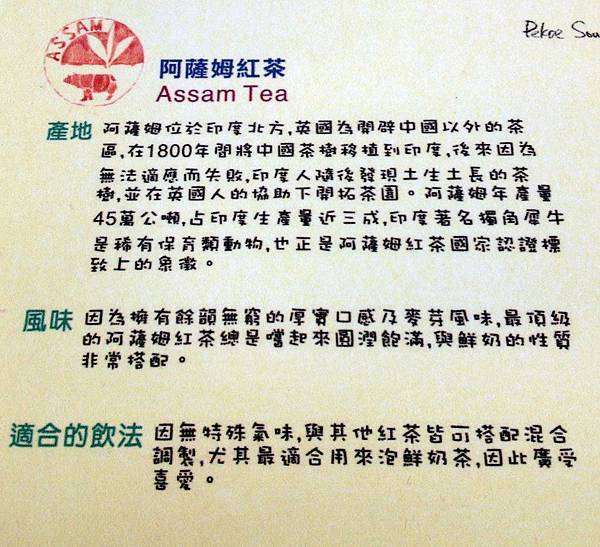 ASSAM
Pekoe Sou
阿薩姆紅茶
Assam Tea
產地 阿薩姆位於印度北方,英國為開闢中國以外的茶
區,在1800年間將中國茶樹移植到印度,後來因為
無法適應而失敗,印度人隨後發現土生土長的茶
樹,並在英國人的協助下開拓茶園。阿薩姆年產量
45萬公噸,占印度生產量近三成,印度著名獨角犀牛
是稀有保育類動物,也正是阿薩姆紅茶國家認證標
致上的象徵。
風味 因為擁有餘韻無窮的厚實口感及麥芽風味,最頂級
的阿薩姆紅茶總是嚐起來圓潤飽滿,與鮮奶的性質
非常搭配。
適合的飲法 因無特殊氣味,與其他紅茶皆可搭配混合
調製,尤其最適合用來泡鮮奶茶,因此廣受
喜愛。